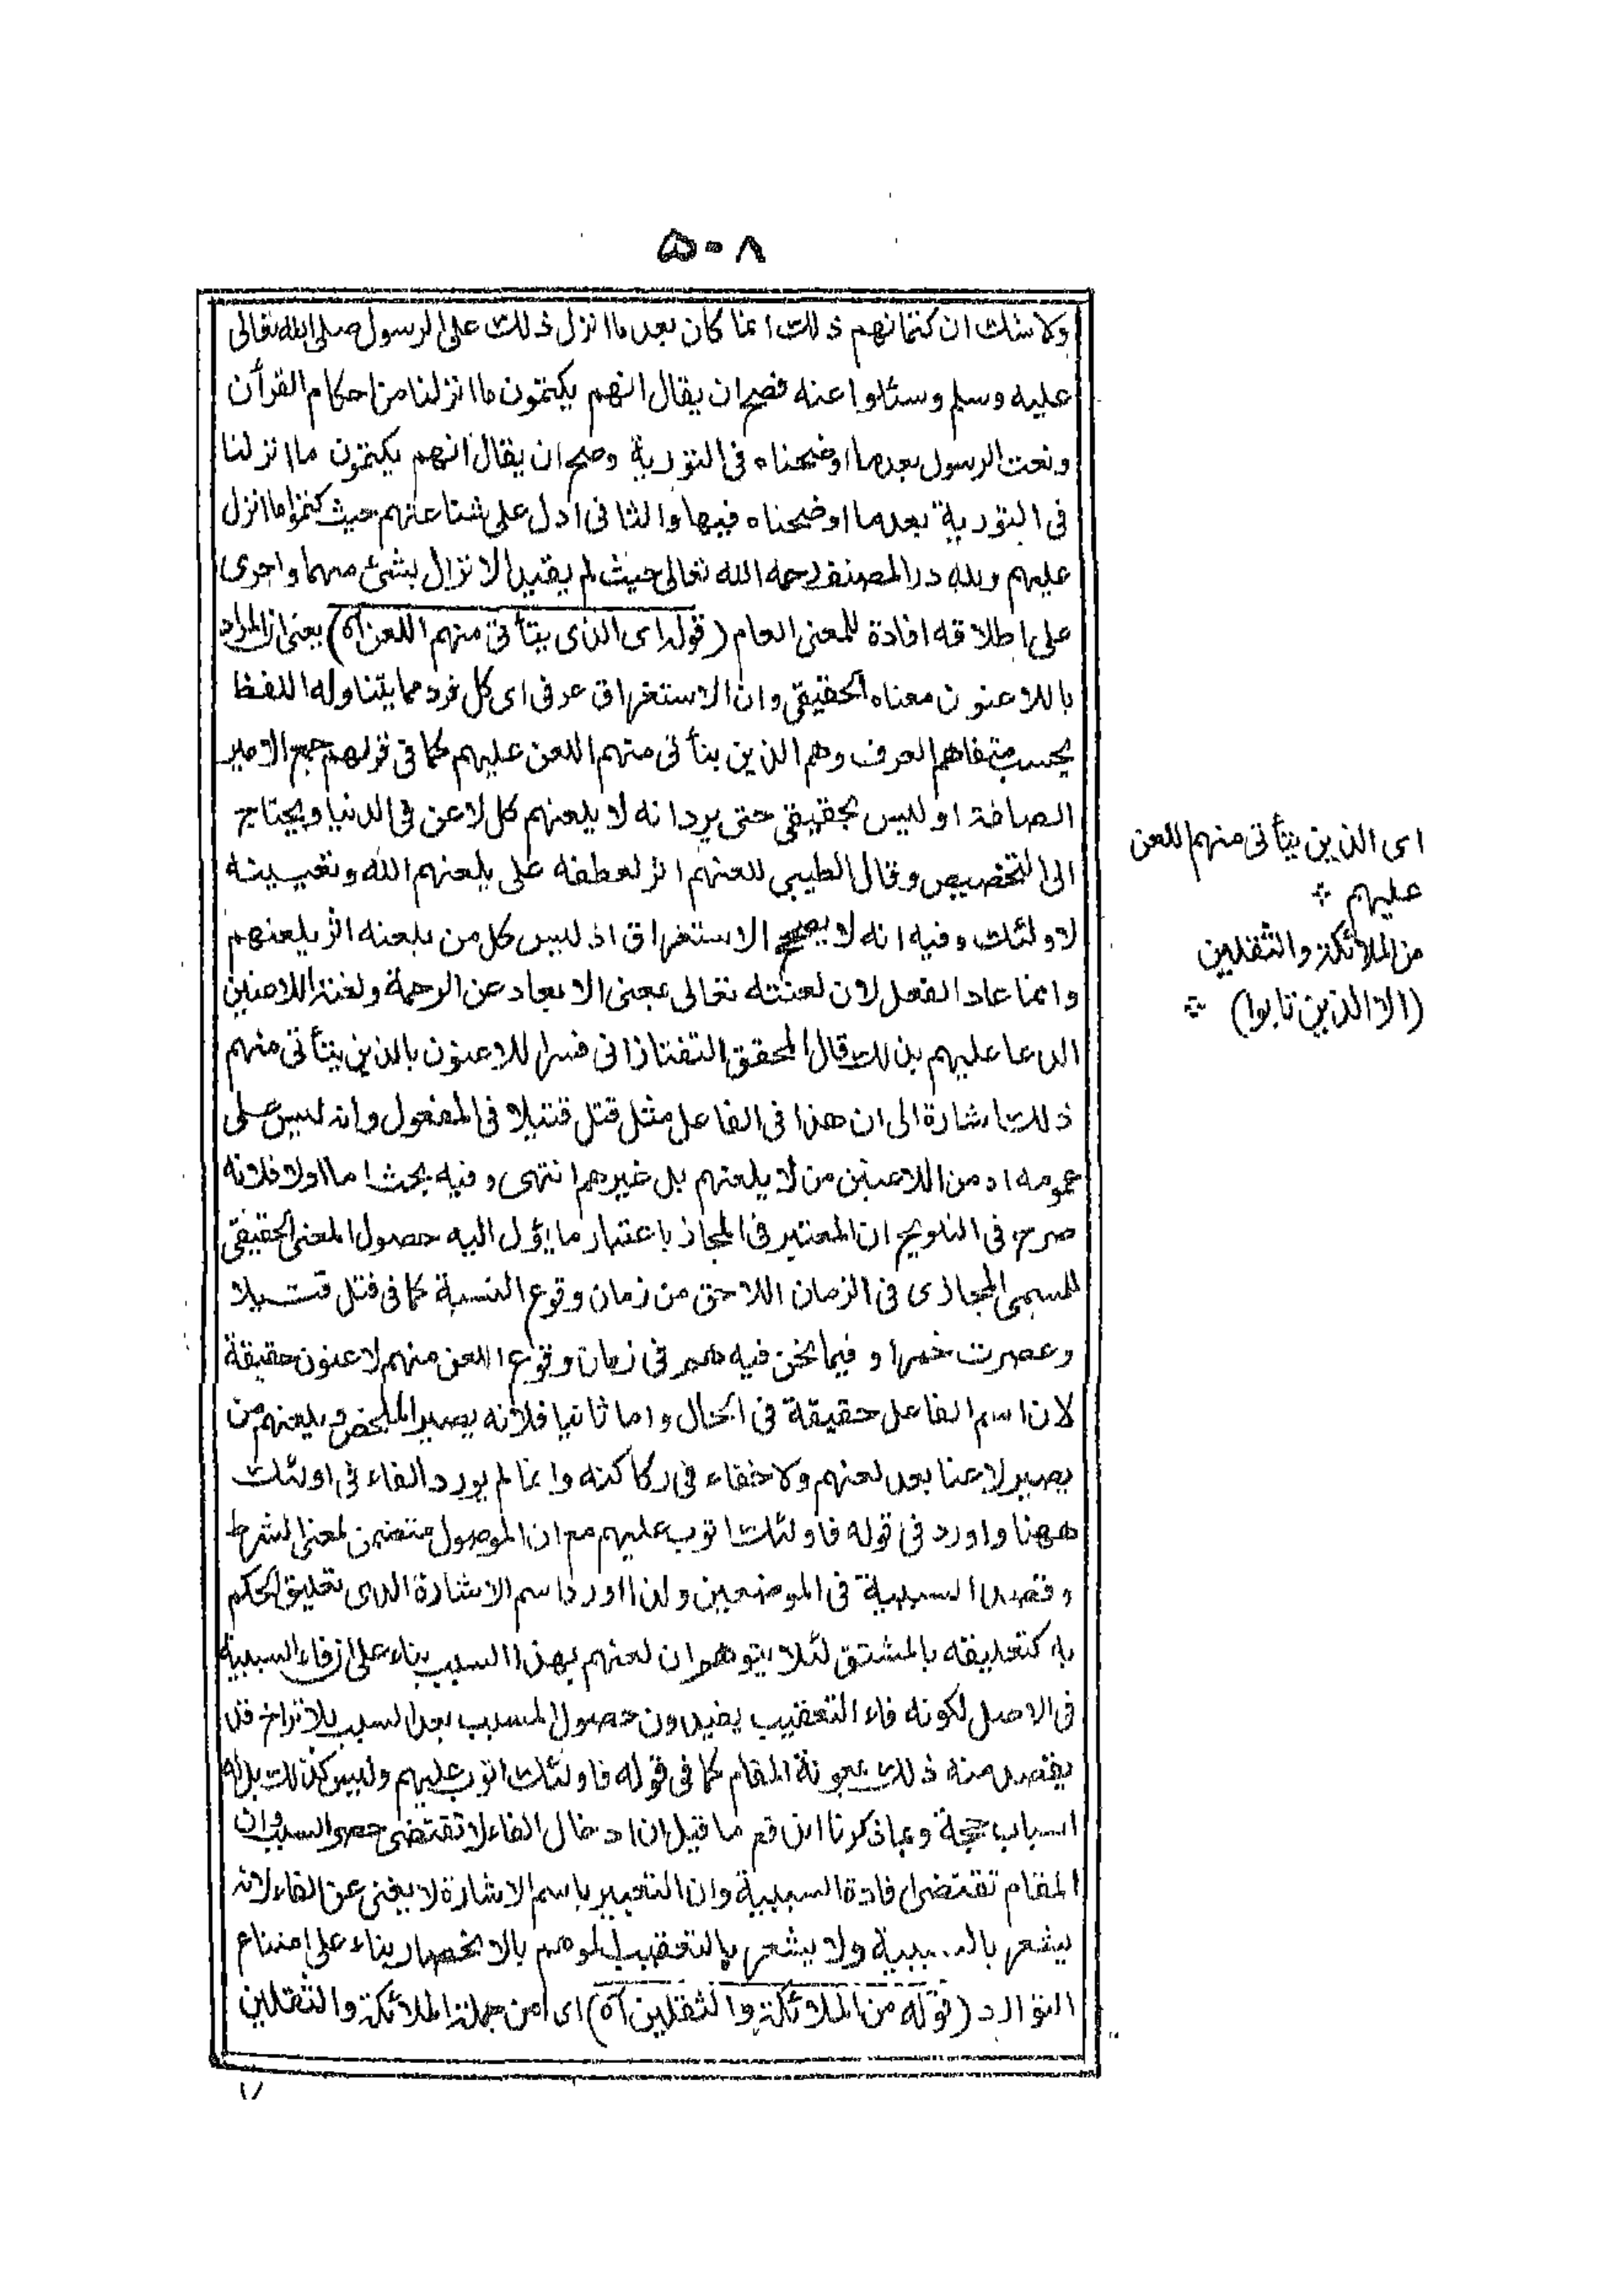 ٥٠٨
ولا شك ان كتمانهم ذلك انما كان بعد ما انزل ذلك على الرسول صلى الله تعالى
عليه وسلم وسئلوا عنه فصح ان يقال انهم يكتمون ما انزلنا من احكام القرأن
ونعت الرسول بعد ما اوضحناه فى التورية وصح ان يقال انهم يكتمون ما انزلنا
فى التورية بعد ما اوضحناه فيها والثانى ادل على شناعتهم حيث كتموا ما انزل
عليهم ولله در المصنف رحمه الله تعالى حيث لم يقيد الانزال بشئ منهما واجرى
على اطلاقه افادة للمعنى العام (قوله اى الذى يتأتى منهم اللعن آه) يعنى ان المراد
باللاعنون معناه الحقيقى وان الاستغراق عرفى اى كل فرد مما يتناوله اللفظ
بحسب متفاهم العرف وهم الذين يتأتى منهم اللعن عليهم كما فى قولهم جمع الامير
الصاغة او ليس بحقيقى حتى يرد انه لا يلعنهم كل لاعن فى الدنيا ويحتاج
الى التخصيص وقال الطيبى للعنهم اثر لعطفه على يلعنهم الله وتغييبته
لاولئك وفيه انه لا يصحح الاستغراق اذ ليس كل من يلعنه اثر يلعنهم
وانما عاد الفعل لان لعنته تعالى بمعنى الابعاد عن الرحمة ولعنة اللاعنين
الدعا عليهم بذلك قال المحقق التفتازانى فسر اللاعنون بالذين يتأتى منهم
ذلك اشارة الى ان هذا فى الفاعل مثل قتل قتيلا فى المفعول وانه ليس على
عمومه اذ من اللاعنين من لا يلعنهم بل غيرهم انتهى وفيه بحث اما اولا فلانه
صرح فى التلويح ان المعتبر فى المجاز باعتبار ما يؤل اليه حصول المعنى الحقيقى
للمسمى المجازى فى الزمان اللاحق من زمان وقوع النسبة كما فى قتل قتيلا
وعصرت خمرا وفيما نحن فيه هم فى زمان وقوع اللعن منهم لاعنون حقيقة
لان اسم الفاعل حقيقة فى الحال واما ثانيا فلانه يصير الملخص ويلعنهم من
يصير لاعنا بعد لعنهم ولا خفاء فى ركاكته وانما لم يورد الفاء فى اولئك
ههنا واورد فى قوله فاولئك اتوب عليهم مع ان الموصول متضمن لمعنى الشرط
وقصد السببية فى الموضعين ولذا اورد اسم الاشارة الذى تعليق الحكم
به كتعليقه بالمشتق لئلا يتوهم ان لعنهم بهذا السبب بناء على ان فاء السببية
فى الاصل لكونه فاء التعقيب يفيد ون حصول المسبب بعد السبب بلا تراخ قد
يقصد منه ذلك بمعونة المقام كما فى قوله فاولئك اتوب عليهم وليس كذلك بل له
اسباب جمة وبما ذكرنا اندفع ما قيل ان ادخال الفاء لا تقتضى حصر السبب وان
المقام تقتضى افادة السببية وان التعبير باسم الاشارة لا يغنى عن الفاء لانه
يشعر بالسببية ولا يشعر بالتعقيب الموهم بالانحصار بناء على امتناع
التوارد (قوله من الملائكة والثقلين آه) اى من جملة الملائكة والثقلين
اى الذين يتأتى منهم اللعن
عليهم ⁘
من الملائكة والثقلين
(الا الذين تابوا) ⁘